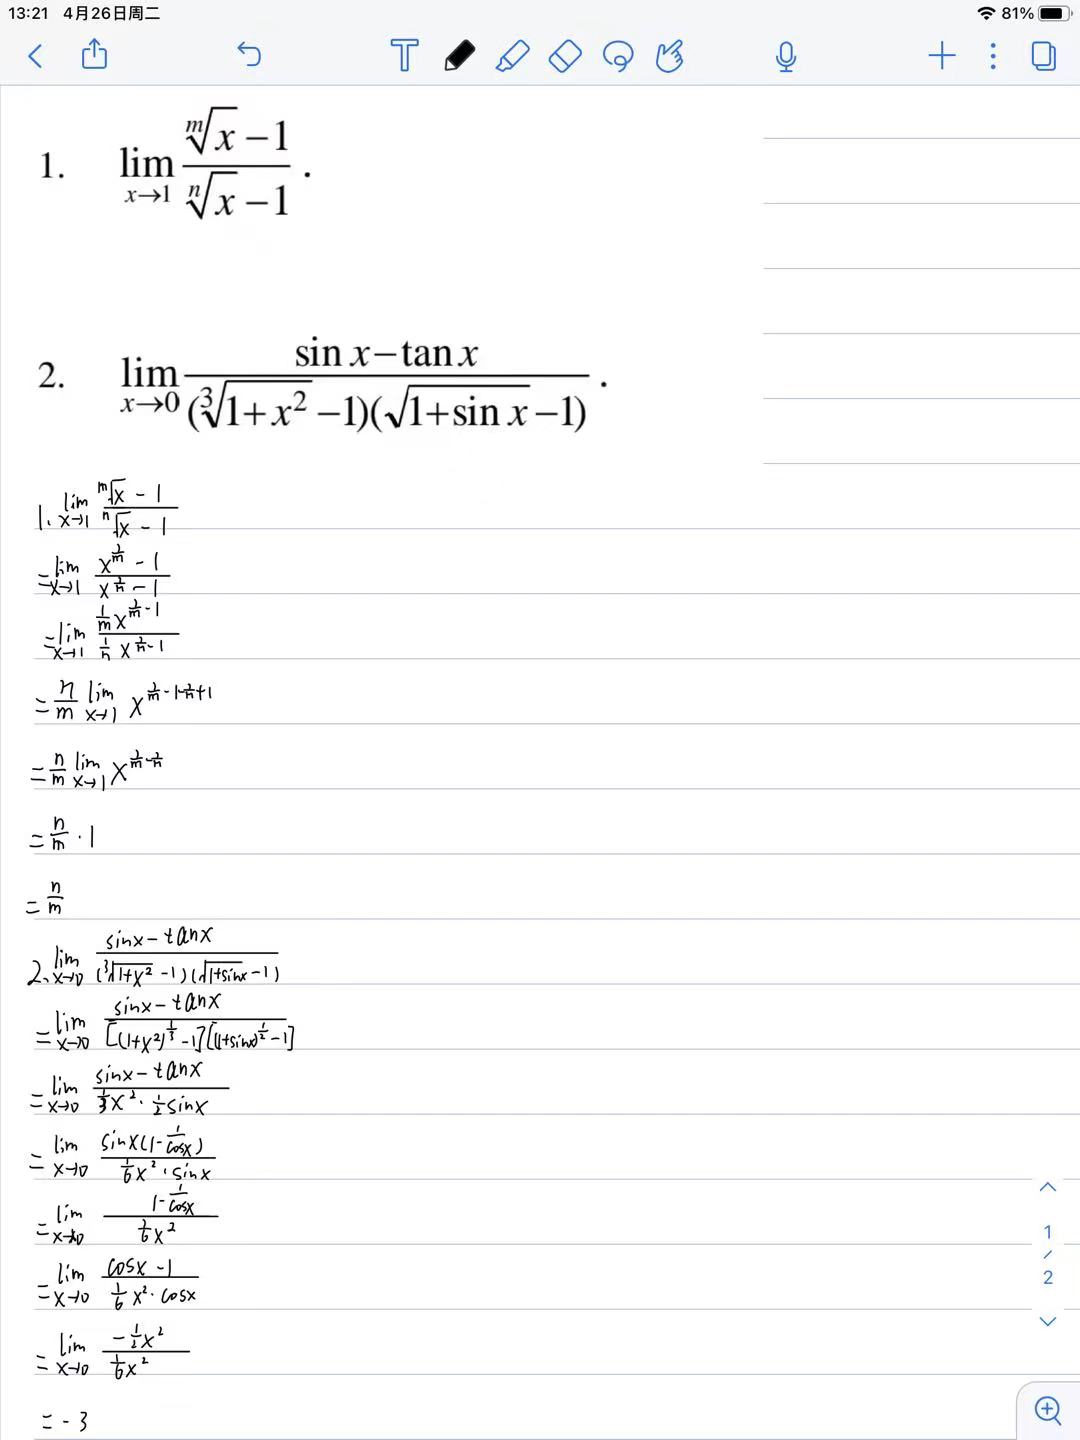 13:21 4月26日周二 81%
1. lim x→1 (ᵐ√x − 1)/(ⁿ√x − 1) .
2. lim x→0 (sin x − tan x)/((³√(1+x²) − 1)(√(1+sin x) − 1)) .
1. lim x→1 (ᵐ√x − 1)/(ⁿ√x − 1)
= lim x→1 (x^(1/m) − 1)/(x^(1/n) − 1)
= lim x→1 (1/m x^(1/m − 1))/(1/n x^(1/n − 1))
= n/m lim x→1 x^(1/m − 1 − 1/n + 1)
= n/m lim x→1 x^(1/m − 1/n)
= n/m · 1
= n/m
2. lim x→0 (sinx − tanx)/((³√(1+x²) − 1)(√(1+sinx) − 1))
= lim x→0 (sinx − tanx)/([(1+x²)^(1/3) − 1][(1+sinx)^(1/2) − 1])
= lim x→0 (sinx − tanx)/(1/3 x² · 1/2 sinx)
= lim x→0 (sinx(1 − 1/cosx))/(1/6 x² · sinx)
= lim x→0 (1 − 1/cosx)/(1/6 x²)
= lim x→0 (cosx − 1)/(1/6 x² · cosx)
= lim x→0 (−1/2 x²)/(1/6 x²)
= −3
1
/
2